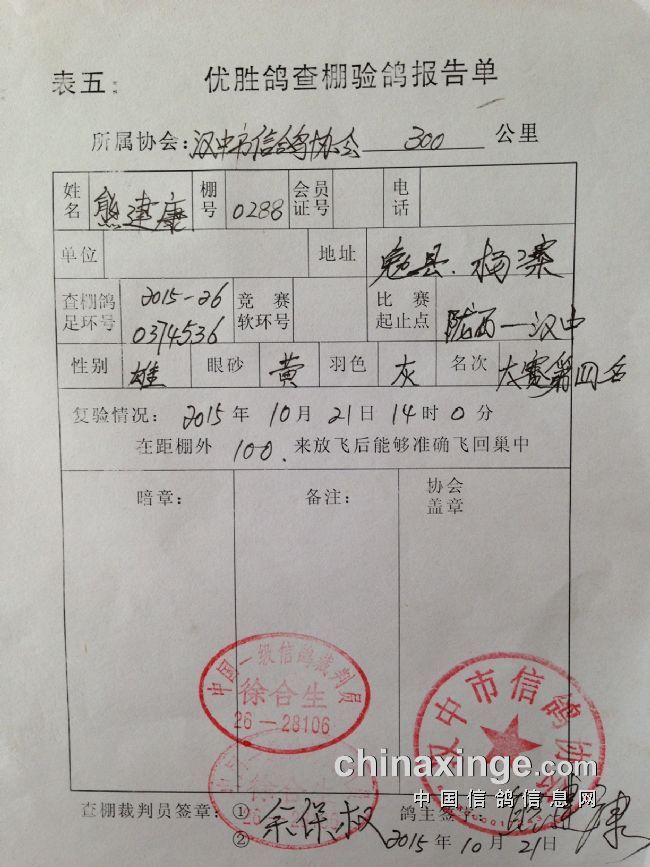 表五: 优胜鸽查棚验鸽报告单
所属协会:汉中市信鸽协会 300 公里
姓名 熊建康 棚号 0288 会员证号 电话
单位 地址 勉县.杨寨
查棚鸽足环号 2015-26 0374536 竞赛软环号 比赛起止点 陇西—汉中
性别 雄 眼砂 黄 羽色 灰 名次 大赛第四名
复验情况: 2015年10月21日14时0分
在距棚外 100. 来放飞后能够准确飞回巢中
暗章: 备注: 协会盖章
中国一级信鸽裁判员
徐合生
26-28106
汉中市信鸽协会
chinaxinge.com
中国信鸽信息网
查棚裁判员签章: ① 余保权 鸽主签字:
② 2015年10月21日